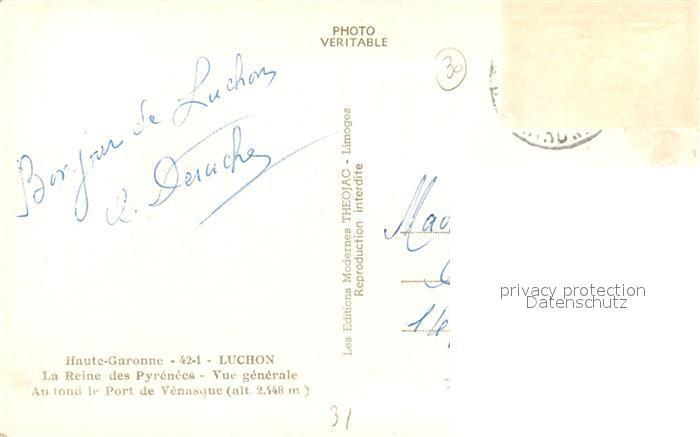 PHOTO
VERITABLE
30
Bonjour de Luchon
Les Editions Modernes THEOJAC - Limoges
Reproduction interdite
privacy protection
Datenschutz
Haute-Garonne - 42-1 - LUCHON
La Reine des Pyrénées - Vue générale
Au fond le Port de Vénasque (alt. 2.448 m)
31